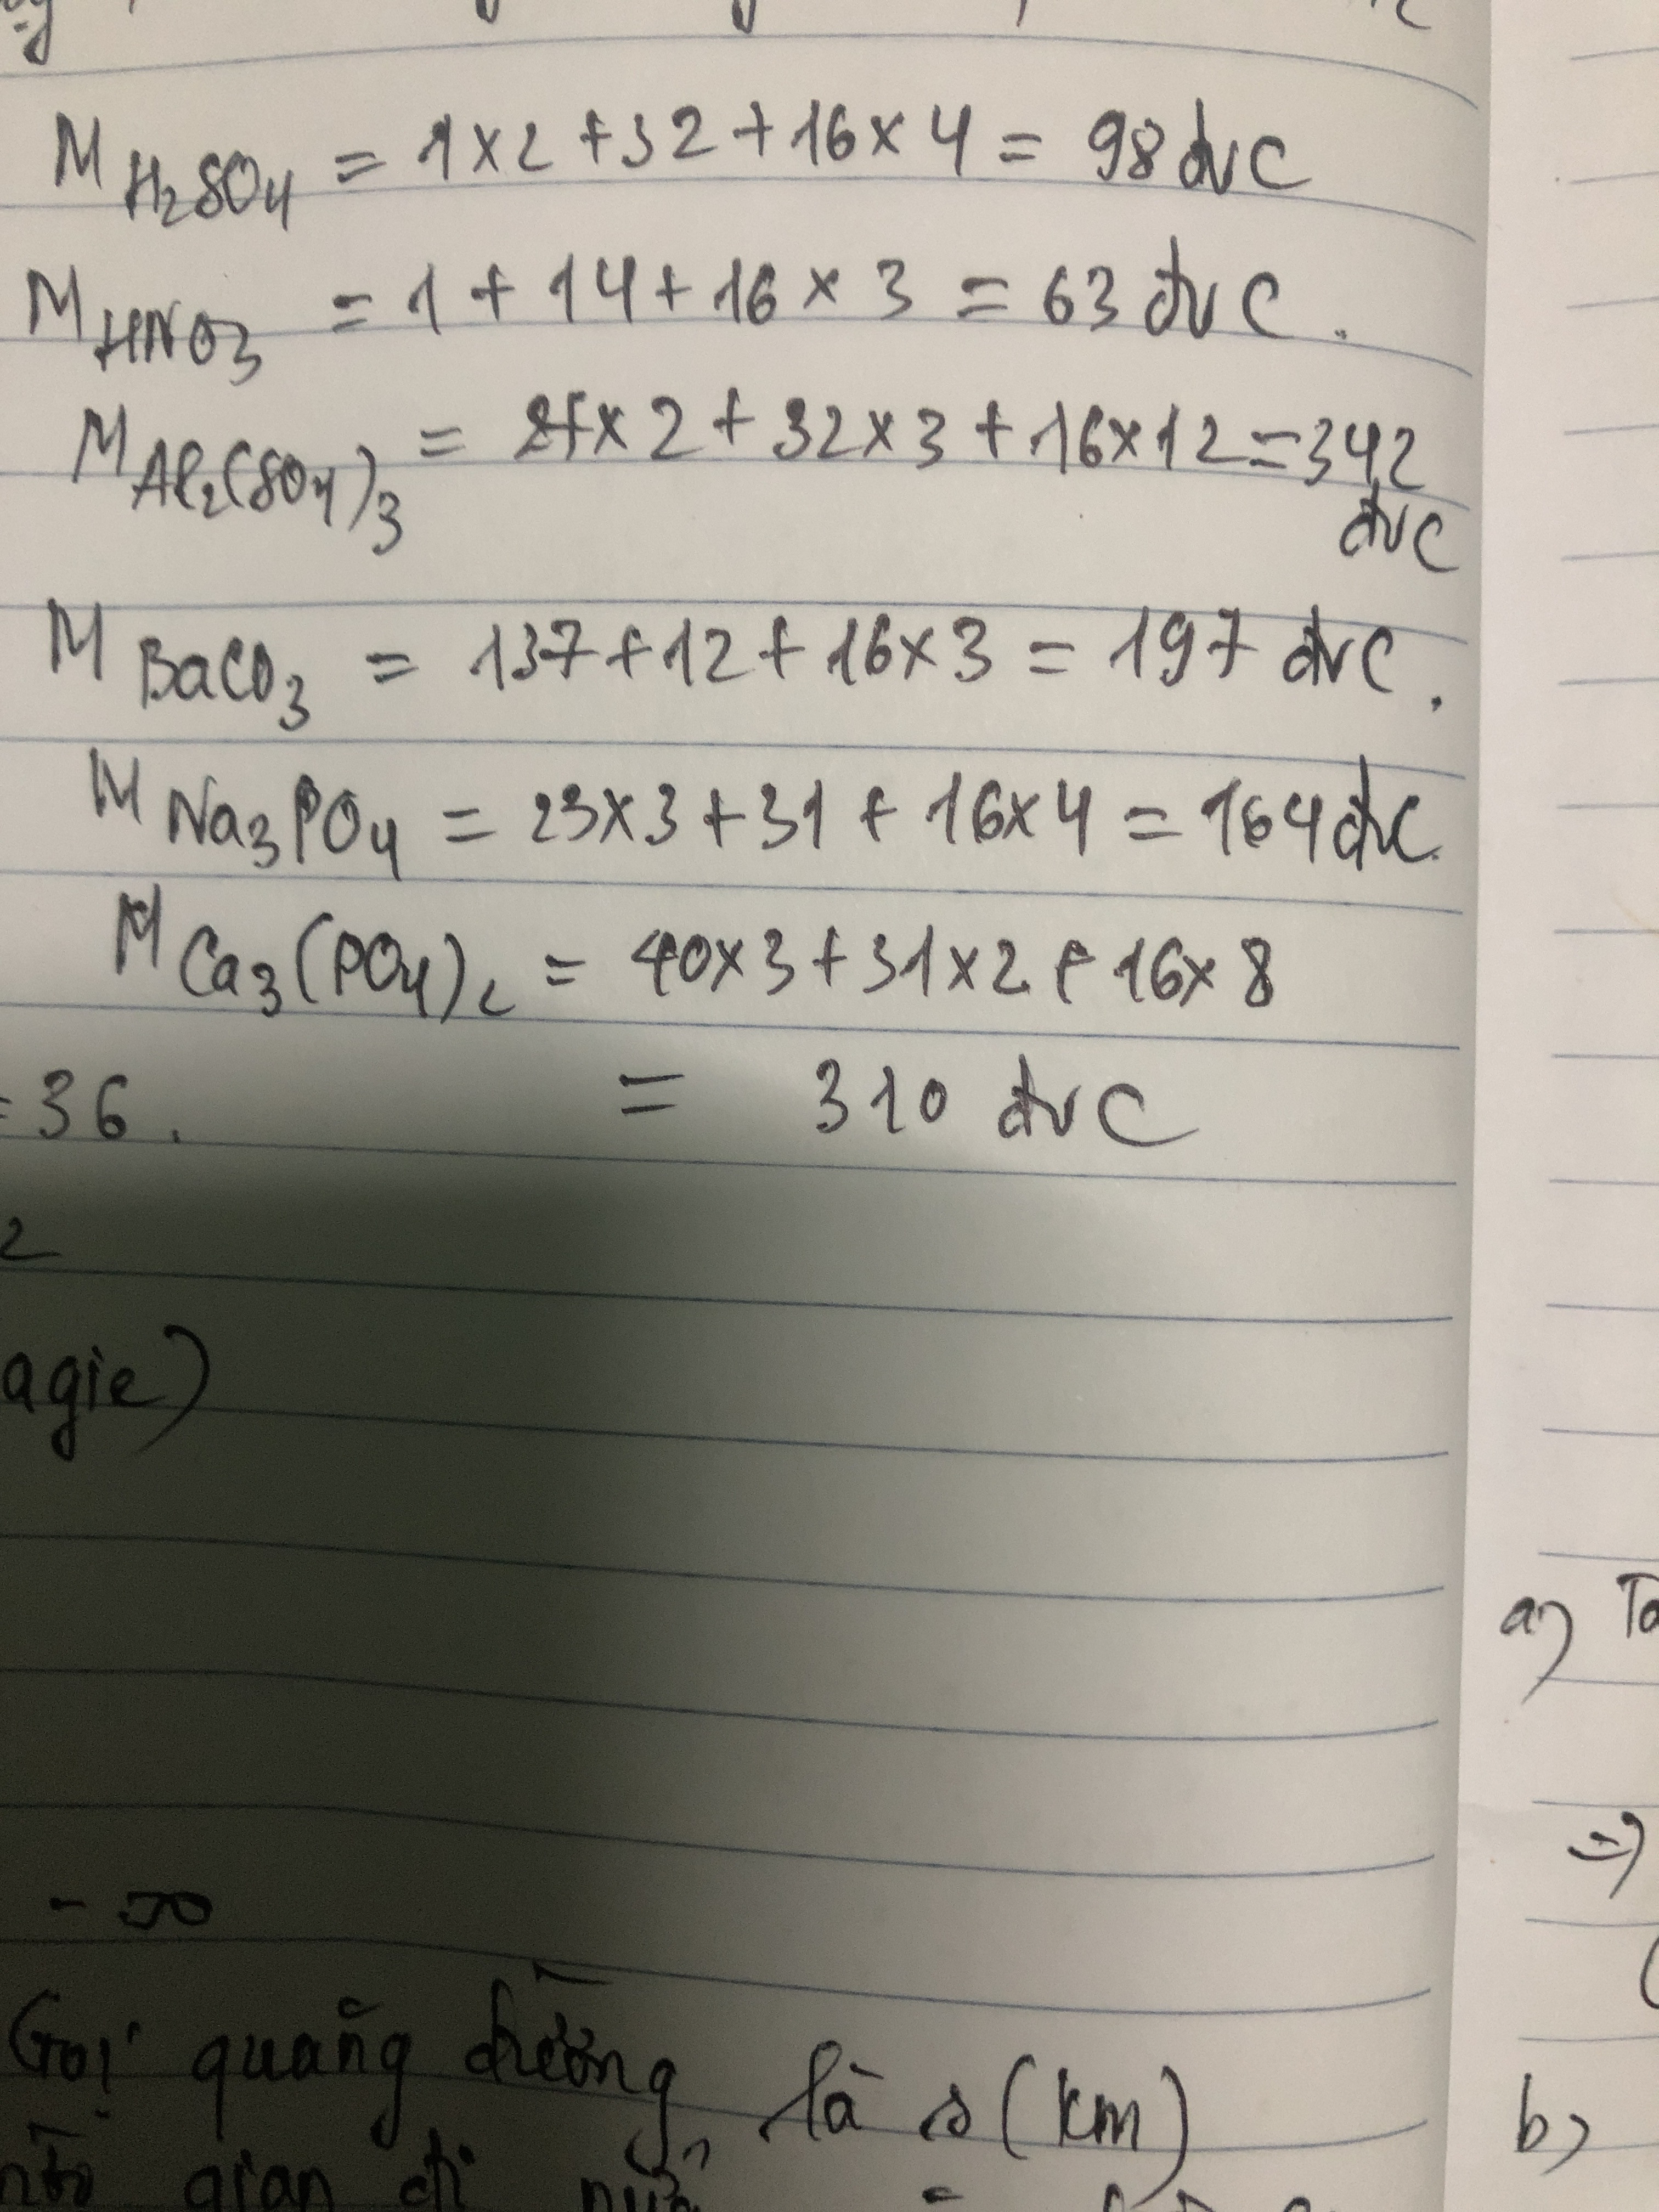 M H₂SO₄ = 1 x 2 + 32 + 16 x 4 = 98 đvC
M HNO₃ = 1 + 14 + 16 x 3 = 63 đvC.
M Al₂(SO₄)₃ = 27 x 2 + 32 x 3 + 16 x 12 = 342
đvC
M BaCO₃ = 137 + 12 + 16 x 3 = 197 đvC.
M Na₃PO₄ = 23 x 3 + 31 + 16 x 4 = 164 đvC.
M Ca₃(PO₄)₂ = 40 x 3 + 31 x 2 + 16 x 8
= 36.
= 310 đvC
2
agie)
Gọi quãng đường là s (km)
gian đi
a)
=>
b)